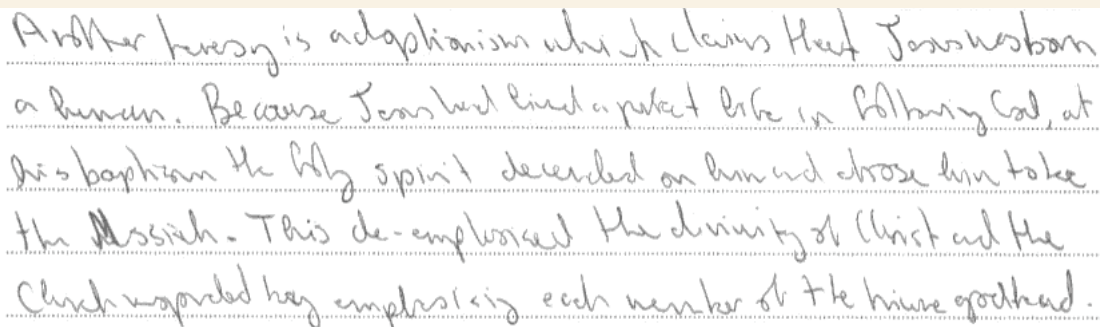 Another heresy is adoptionism which claims that Jesus was born
a human. Because Jesus had lived a perfect life in following God, at
his baptism the holy spirit decended on him and chose him to be
the Messiah. This de-emphasised the divinity of Christ and the
Church responded by emphasising each member of the triune godhead.